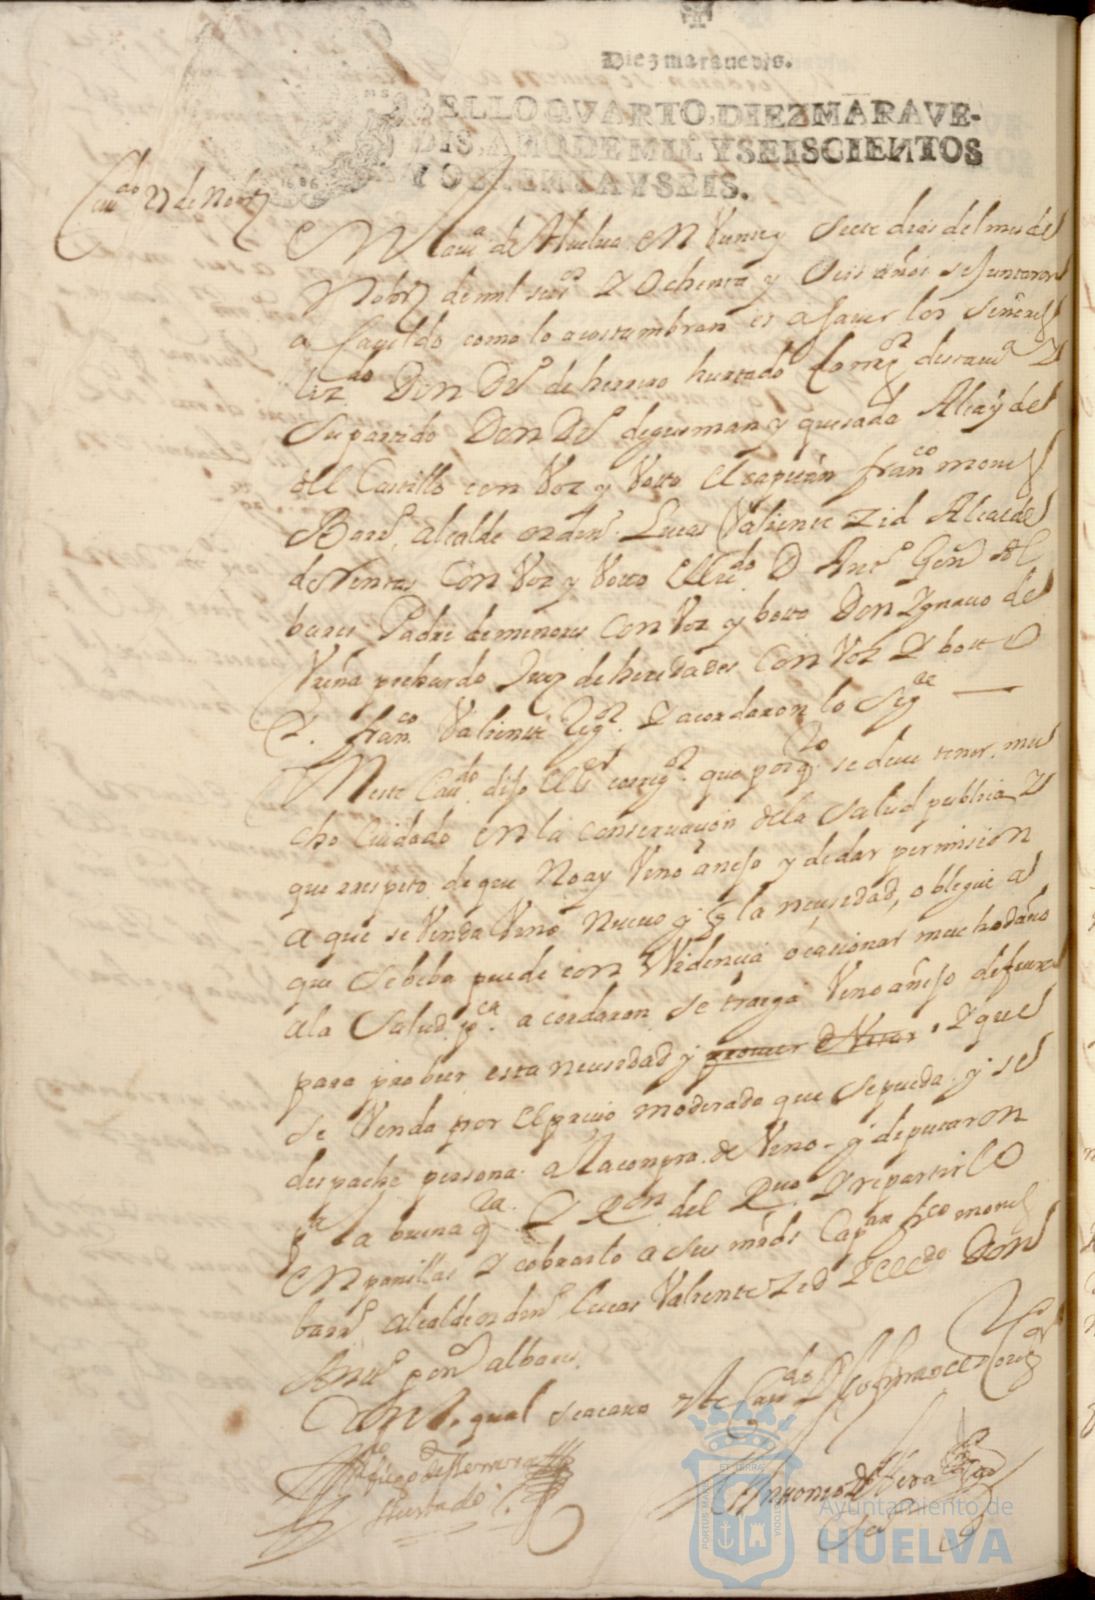 Diez maravedis.
SELLO QVARTO, DIEZ MARAVE-
DIS, AÑO DE MIL Y SEISCIENTOS
Y OCHENTA Y SEIS.
1686
Caudo 27 de Nobre
En la Villa de Huelva en Veinte y Siete dias del mes de
Nobre de mil seisos y Ochenta y Seis años se Juntaron
a Cauildo como lo acostumbran es a saver los Señores
Lizdo Don Do de herrera hurtado Corregor desta uilla y
Su partido Don Do de gusman y quesada Alcayde
del Castillo con Voz y Voto El capitan franco
alcalde ordino Lucas Valiente Zid Alcalde
de Ventas Con Voz y Voto El Lizdo D Anto
bares Padre de menores Con Voz y boto Don Ygnacio de
Vreña Juez de heredades Con Voz y boto
D. franco Valiente Regor y acordaron lo Sigte
En este Caudo dijo El Sr corregor que por qto se deue tener mu
cho Cuidado en la Conseruaçion de la Salud publica y
que respeto de que No ay Vino añejo y de dar permision
a que se Venda Vino Nueuo y la neçesidad, obligue a
que se beba puede con Evidencia ocasionar mucho daño
a la Salud pca acordaron se traiga Vino añejo de fuera
para probeer esta necesidad y que
se Venda por El preçio moderado que se pueda y se
despache persona a la compra de Vino y diputaron
pa la buena qta y Ron del Rvo y repartirlo
en panillas y cobrarlo a Sus mrds Capan frco
alcalde ordino Lucas Valiente Zid y El Lcdo Don
Anto albares
Con lo qual se acauo este Caudo y lo firmo el Sr Corregor
Diego de Herrera
Hurtado
Antonio de Vera
PORTUS MARIS ET TERRAE CUSTODIA
Ayuntamiento de
HUELVA